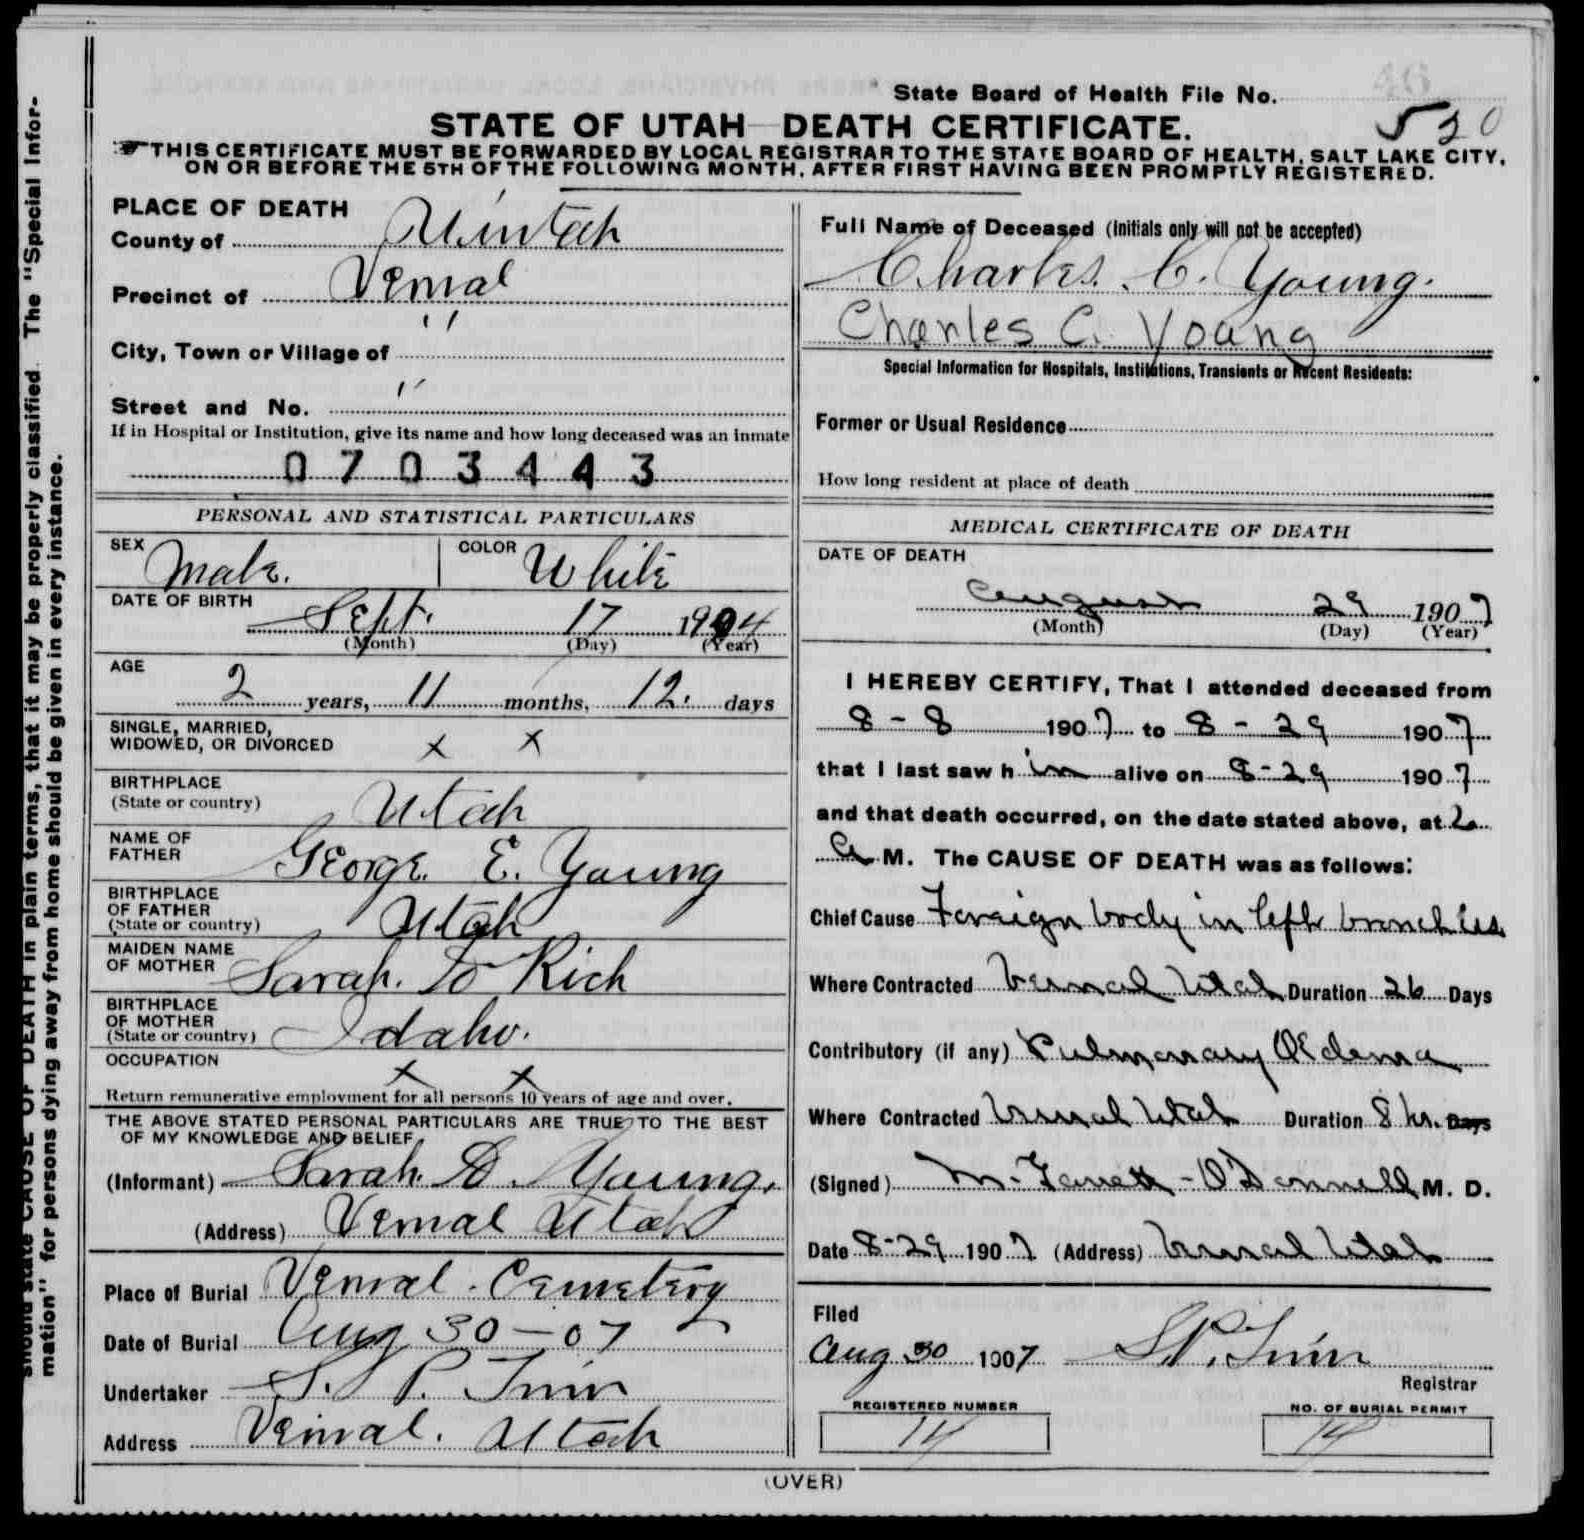 State Board of Health File No. 520
46
STATE OF UTAH—DEATH CERTIFICATE.
THIS CERTIFICATE MUST BE FORWARDED BY LOCAL REGISTRAR TO THE STATE BOARD OF HEALTH, SALT LAKE CITY,
ON OR BEFORE THE 5TH OF THE FOLLOWING MONTH, AFTER FIRST HAVING BEEN PROMPTLY REGISTERED.
should state CAUSE OF DEATH in plain terms, that it may be properly classified. The "Special Infor-
mation" for persons dying away from home should be given in every instance.
PLACE OF DEATH
County of Uintah
Precinct of Vernal
City, Town or Village of "
Street and No. "
If in Hospital or Institution, give its name and how long deceased was an inmate
0703443
PERSONAL AND STATISTICAL PARTICULARS
SEX Male. COLOR White
DATE OF BIRTH
Sept. 17 1904
(Month) (Day) (Year)
AGE
2 years, 11 months, 12. days
SINGLE, MARRIED,
WIDOWED, OR DIVORCED x x
BIRTHPLACE
(State or country) Utah
NAME OF
FATHER George. E. Young
BIRTHPLACE
OF FATHER
(State or country) Utah
MAIDEN NAME
OF MOTHER Sarah. D Rich
BIRTHPLACE
OF MOTHER
(State or country) Idaho.
OCCUPATION x x
Return remunerative employment for all persons 10 years of age and over.
THE ABOVE STATED PERSONAL PARTICULARS ARE TRUE TO THE BEST
OF MY KNOWLEDGE AND BELIEF
(Informant) Sarah. D. Young.
(Address) Vernal Utah
Place of Burial Vernal. Cemetery
Date of Burial Aug 30-07
Undertaker S. P.
Address Vernal. Utah
Full Name of Deceased (Initials only will not be accepted)
Charles. C. Young.
Charles C. Young
Special Information for Hospitals, Institutions, Transients or Recent Residents:
Former or Usual Residence
How long resident at place of death
MEDICAL CERTIFICATE OF DEATH
DATE OF DEATH
August 29 1907
(Month) (Day) (Year)
I HEREBY CERTIFY, That I attended deceased from
8-8 1907 to 8-29 1907
that I last saw him alive on 8-29 1907
and that death occurred, on the date stated above, at 2
A M. The CAUSE OF DEATH was as follows:
Chief Cause Foreign body in left bronchus
Where Contracted Vernal Utah Duration 26 Days
Contributory (if any) Pulmonary Œdema
Where Contracted Vernal Utah Duration 8 hr. Days
(Signed) M. - O'Donnell M. D.
Date 8-29 1907 (Address) Vernal Utah
Filed
Aug 30 1907 S.P.
Registrar
REGISTERED NUMBER
14
NO. OF BURIAL PERMIT
14
(OVER)